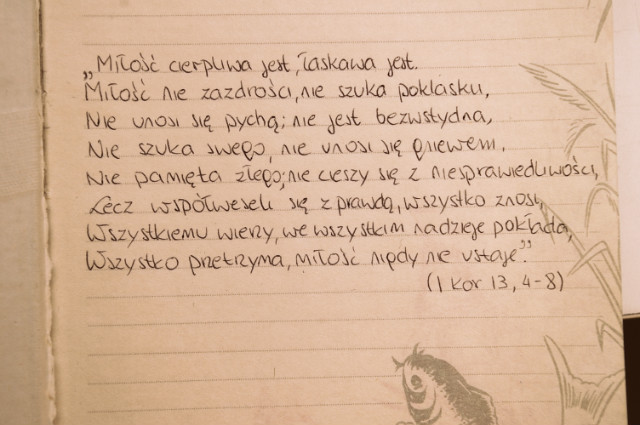 „Miłość cierpliwa jest, łaskawa jest.
Miłość nie zazdrości, nie szuka poklasku,
Nie unosi się pychą; nie jest bezwstydna,
Nie szuka swego, nie unosi się gniewem,
Nie pamięta złego; nie cieszy się z niesprawiedliwości,
Lecz współweseli się z prawdą, wszystko znosi,
Wszystkiemu wierzy, we wszystkim nadzieje pokłada,
Wszystko przetrzyma, miłość nigdy nie ustaje".
(1 Kor 13, 4-8)